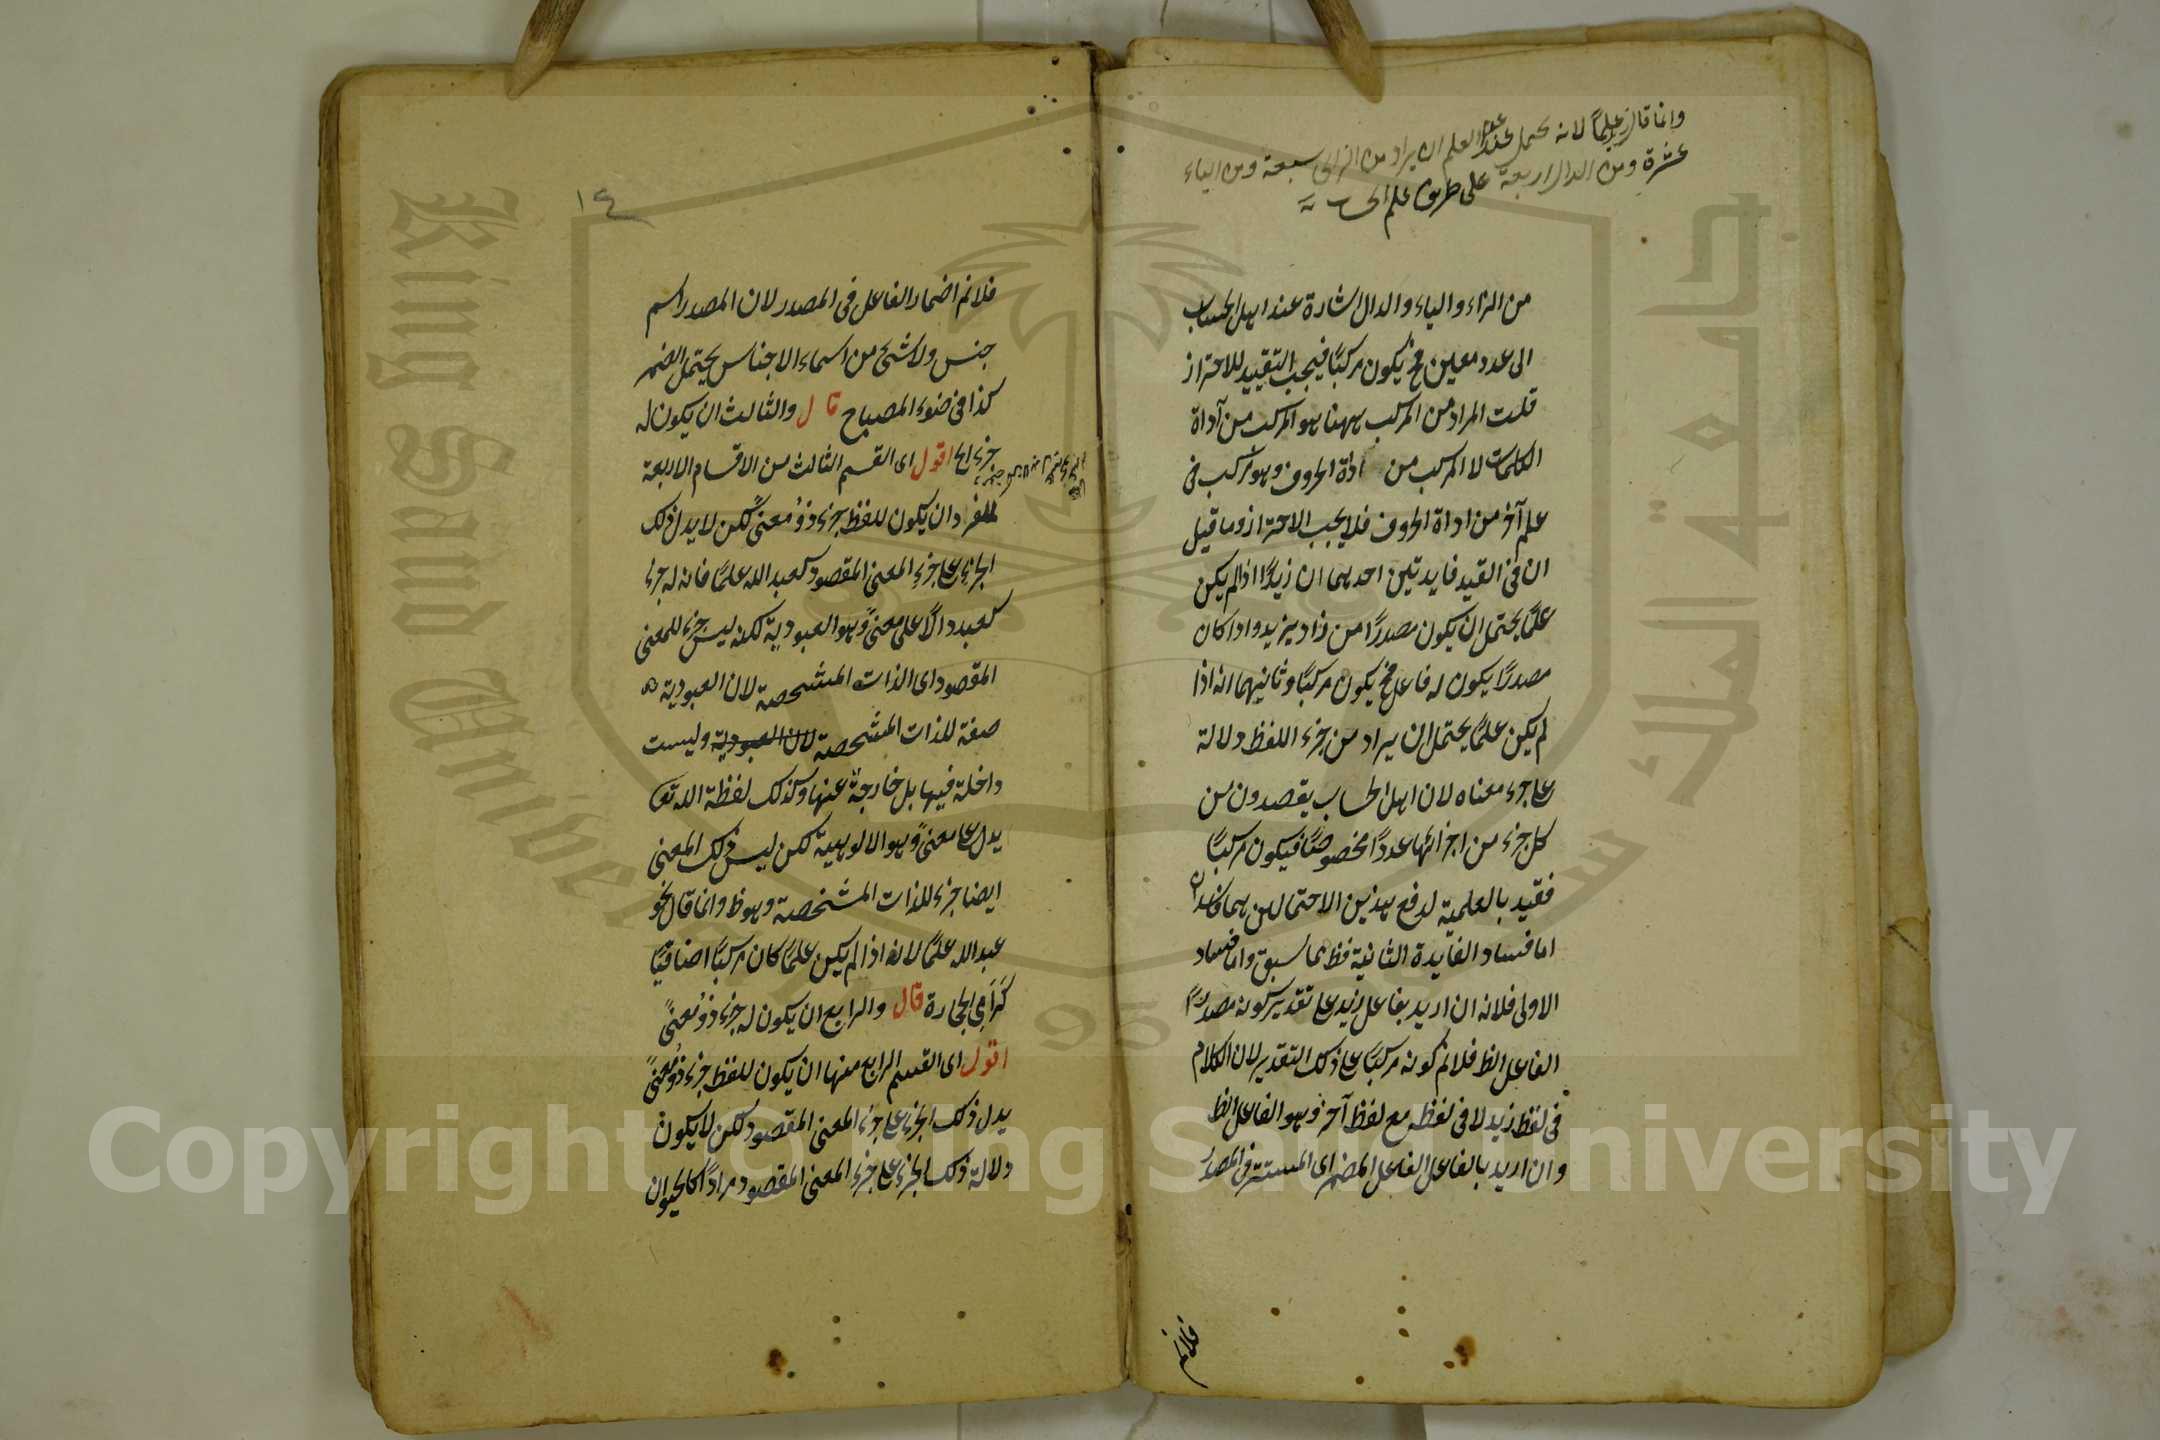 وانما قال زيد علما لانه يحتمل عند عدم العلم ان يراد من الزاى سبعة ومن الياء
عشرة ومن الدال اربعة على طريق علم الحساب
من الزاء والياء والدال اشارة عند اهل الحساب
الى عدد معين فح يكون مركبًا فيجب التقييد للاحتراز
قلت المراد من المركب ههنا هو المركب من آداة
الكلمات لا المركب من اداة الحروف وهو مركب فى
علم آخر من اداة الحروف فلا يجب الاحتراز وما قيل
ان فى القيد فايدتين احديهما ان زيدًا اذا لم يكن
علمًا يحتمل ان يكون مصدرًا من زاد يزيد واذا كان
مصدرًا يكون له فاعل فح يكون مركبًا وثانيهما انه اذا
لم يكن علمًا يحتمل ان يراد من جزء اللفظ دلالة
على جزء معناه لان اهل الحساب يقصدون من
كل جزء من اجزائها عددًا مخصوصًا فيكون مركبًا
فقيد بالعلمية لدفع هذين الاحتمالين هما فاسدان
اما فساد الفايدة الثانية فظ مما سبق واما فساد
الاولى فلانه ان اريد بفاعل زيد على تقدير كونه مصدرًا
الفاعل الظ فلا نم كونه مركبًا على ذلك التقدير لان الكلام
فى لفظ زيد لا فى لفظه مع لفظ آخر وهو الفاعل الظ
وان اريد بالفاعل الفاعل المضمر اى المستتر فى المصدر
فلانم
١٤
فلانم اضمار الفاعل فى المصدر لان المصدر اسم
جنس ولا شئ من اسماء الاجناس يحتمل الضمير
كذا فى ضوء المصباح قال والثالث ان يكون له
جزء الخ اقول اى القسم الثالث من الاقسام الاربعة
للمفرد ان يكون للفظ جزء ذو معنىً لكن لا يدل ذلك
الجزء على جزء المعنى المقصود كعبد الله علمًا فانه له جزء
كعبد دالًا على معنىً وهو العبودية لكنه ليس جزء للمعنى
المقصود اى الذات المشخصة لان العبودية
صفة للذات المشخصة لان العبودية وليست
داخلة فيها بل خارجة عنها وكذلك لفظة الله تع
يدل على معنىً وهو الالوهية لكن ليس ذلك المعنى
ايضا جزء للذات المشخصة وهو ظ وانما قال نحو
عبد الله علمًا لانه اذا لم يكن علمًا كان مركبًا اضافيًا
كرامى الحجارة قال والرابع ان يكون له جزء ذو معنىً
اقول اى القسم الرابع منها ان يكون للفظ جزء ذو معنىً
يدل ذلك الجزء على جزء المعنى المقصود لكن لا يكون
دلالة ذلك الجزء على جزء المعنى المقصود مرادًا كالحيوان
جامعة الملك سعود
King Saud University
Copyright © King Saud University